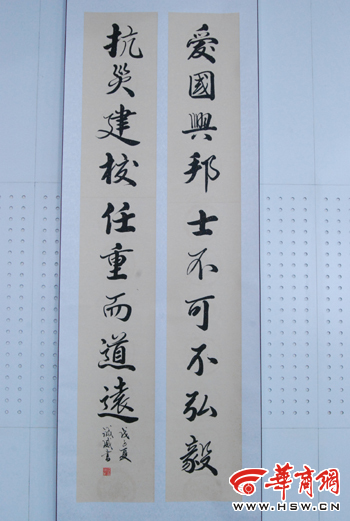 愛國興邦士不可不弘毅
抗災建校任重而道遠
戊子夏
華商網
WWW.HSW.CN